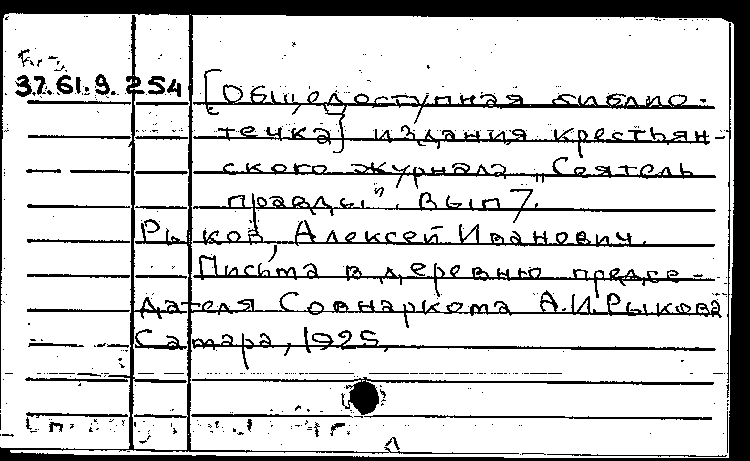 37.61.9.254 [Общедоступная библио-
течка] издания крестьян-
ского журнала „Сеятель
правды“. Вып 7.
Рыков, Алексей Иванович.
Письма в деревню предсе-
дателя Совнаркома А.И.Рыкова
Самара, 1925.